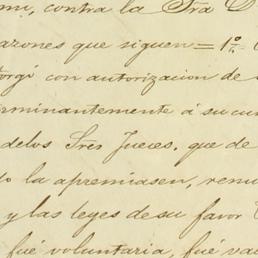 mi, contra la Sra D
razones que siguen = 1º. 
Jorgé con autorizacion de
erminantemente á su cu
delos Tres Jueces, que de
do la apremiasen, renu
y las leyes de su favor
fué voluntaria, fué va